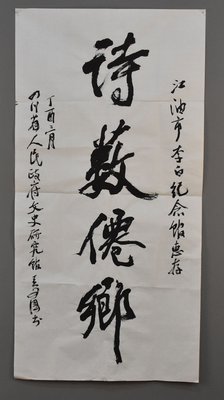 江油市李白纪念馆惠存
诗薮僊乡
丁酉三月
四川省人民政府文史研究馆
书